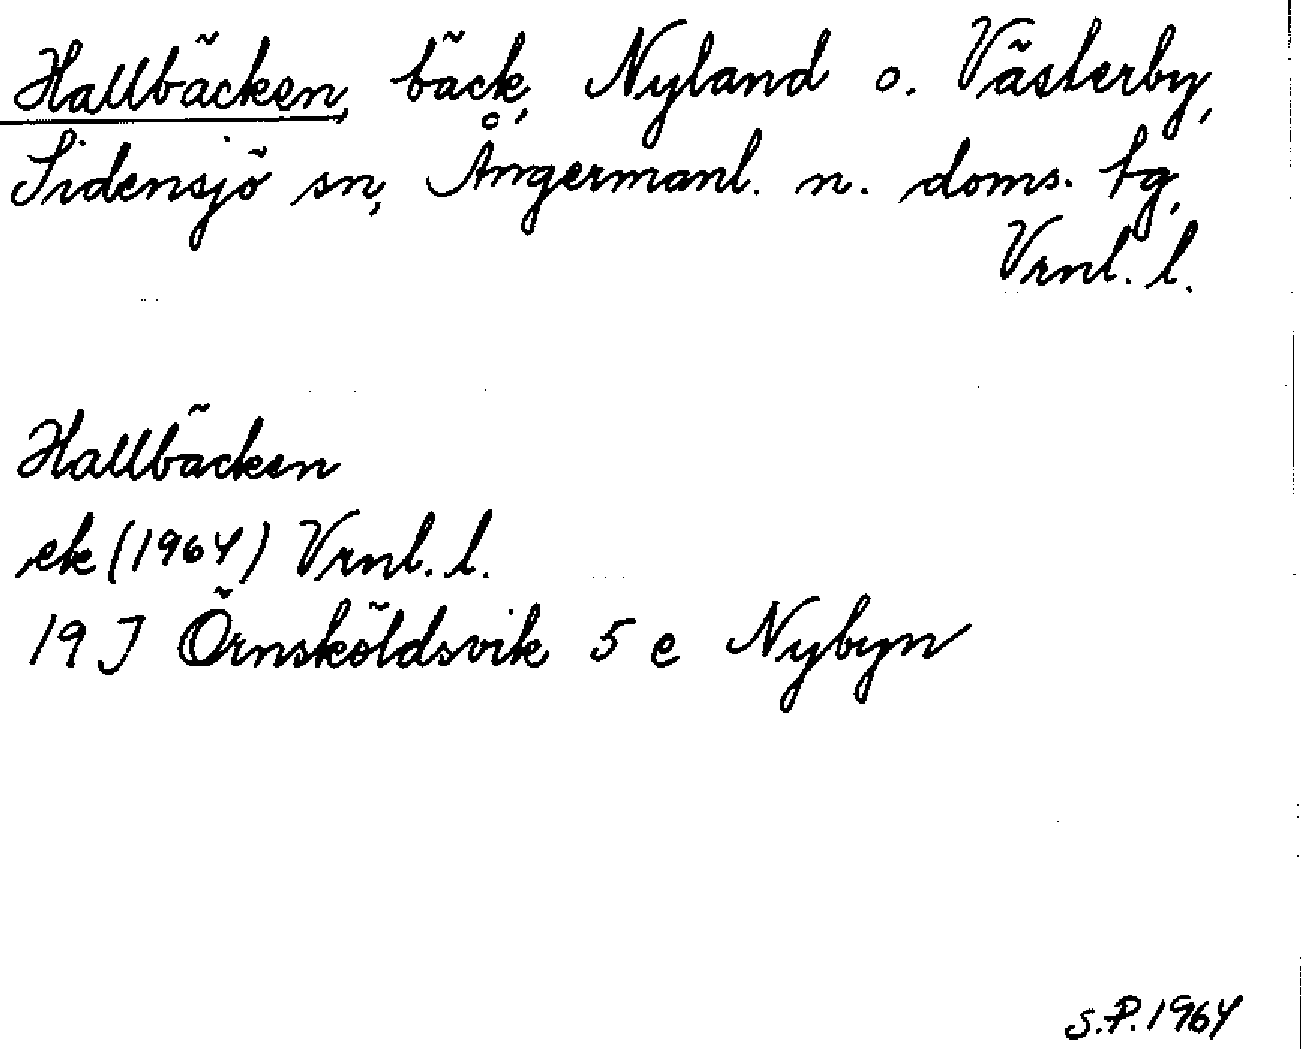 Hallbäcken, bäck, Nyland o. Västerby,
Sidensjö sn, Ångermanl. n. doms. tg,
Vrnl. l.
Hallbäcken
ek (1964) Vrnl. l.
19 J Örnsköldsvik 5 e Nybyn
S.P. 1964